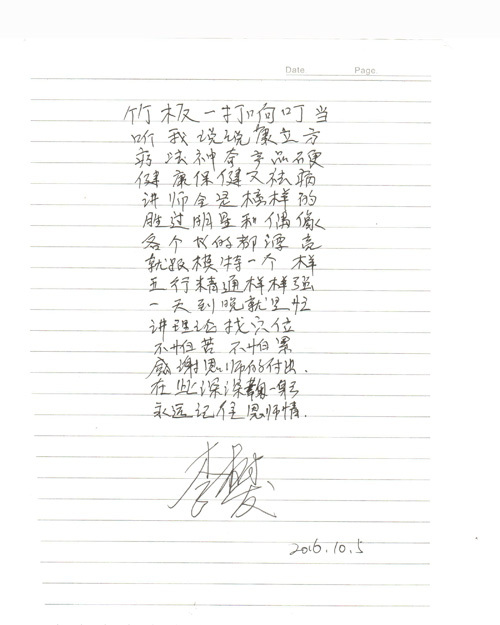 Date
Page.
竹板一打响叮当
听我说说康立方
疗法神奇产品硬
健康保健又祛病
讲师全是榜样的
胜过明星和偶像
各个长的都漂亮
就跟模特一个样
五行精通样样强
一天到晚就是忙
讲理论找穴位
不怕苦 不怕累
感谢恩师的付出.
在此深深鞠一躬
永远记住恩师情.
李
2016.10.5